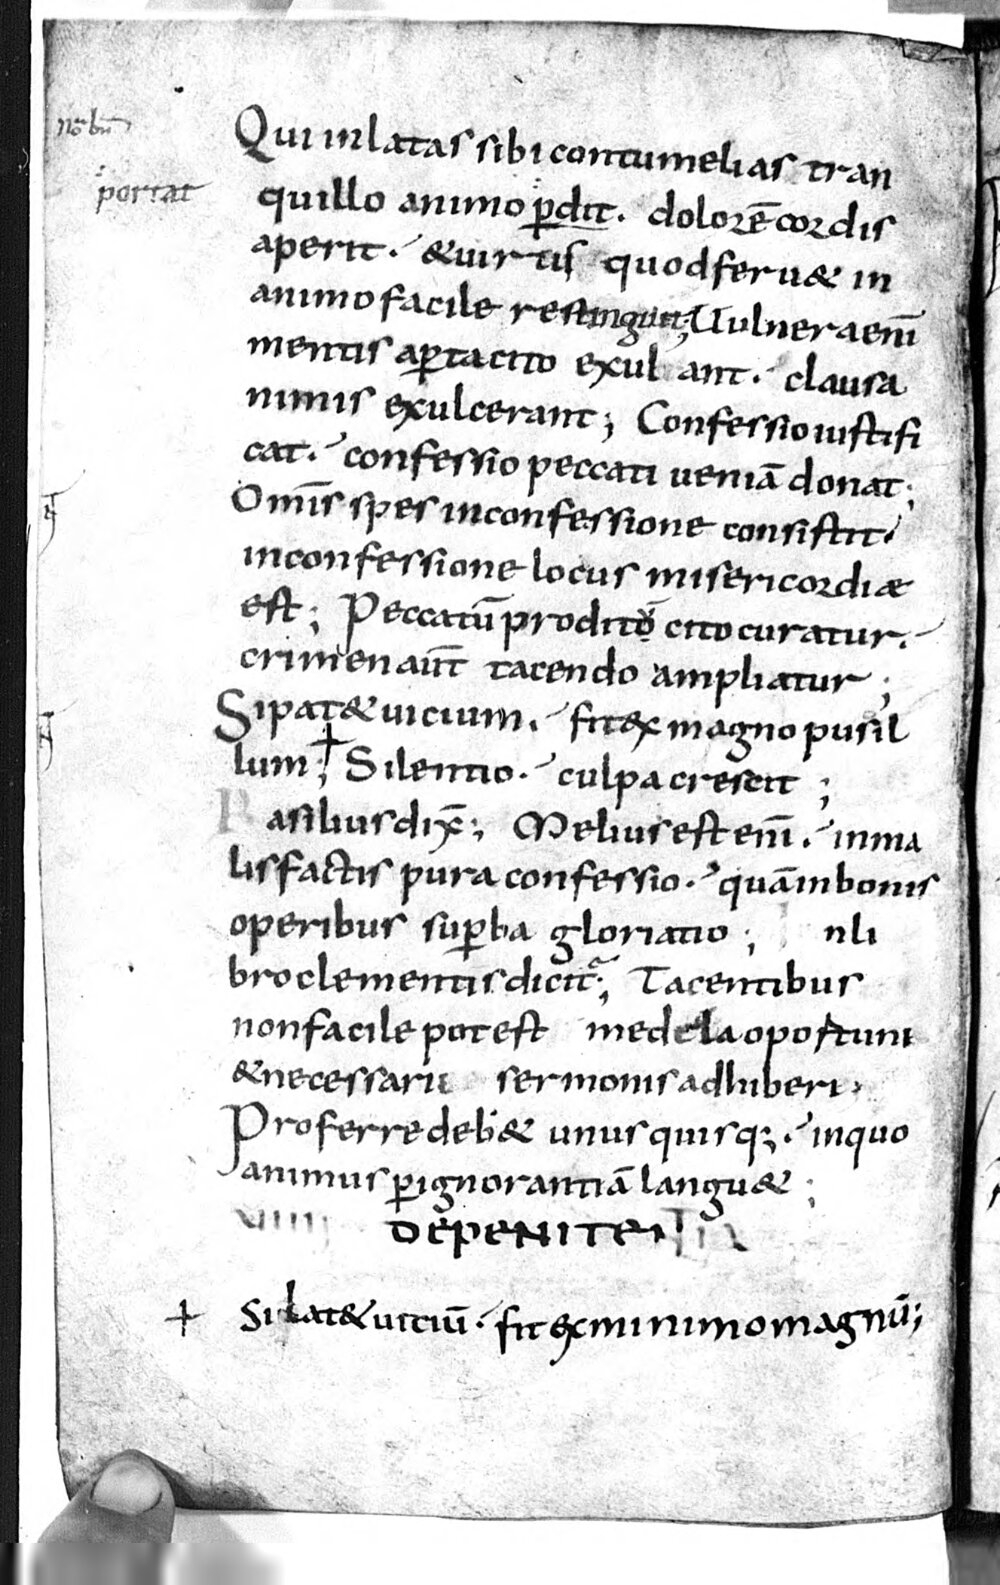 nō bn̄
Qui inlatas sibi contumelias tran
portat
quillo animo ꝑdit. dolorē cordis
aperit. & uirtus quod feru& in
animo facile restinguit; Uulnera eni̅
mentis aꝑta cito exulant. clausa
nimis exulcerant; Confessio iustifi
cat. confessio peccati ueniā donat;
Omīs spes in confessione consistit.
in confessione locus misericordiæ
est; Peccatū proditū cito curatur.
crimen aut̅ tacendo ampliatur;
Si pat& uicium. fit ex magno pusil
lum; + Silentio. culpa crescit;
Basilius dix̅; Melius est eni̅. in ma
lis factis pura confessio. quā in bonis
operibus suꝑba gloriatio; n li
bro clementis dicit̅; Tacentibus
non facile potest medela oportuni
& necessarii sermonis adhiberi.
Proferre deb& unusquisq;. in quo
animus ꝑ ignorantiā langu&;
VIIII DE PENITENTIA
+ Si lat& uitiū. fit ex minimo magnū;